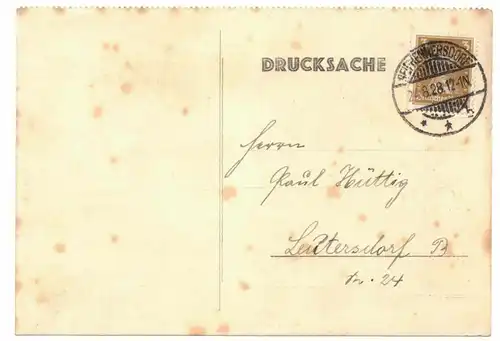 DRUCKSACHE
HENNERSDORF
8.28.12-1N
Herrn
Paul Hüttig
Leutersdorf B
No. 24